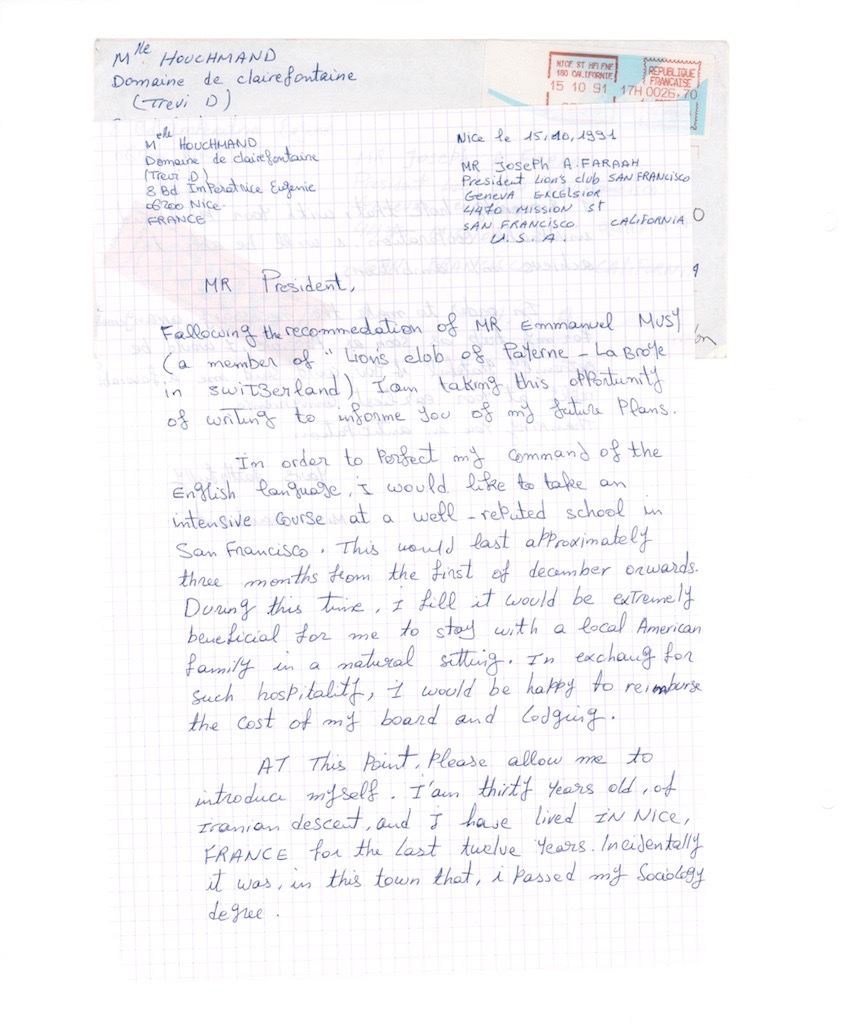 Mlle HOUCHMAND
Domaine de clairefontaine
(Trevi D)
NICE ST HELENE
180 CALIFORNIE
15 10 91
REPUBLIQUE
FRANCAISE
17H 0026,70
Melle HOUCHMAND
Domaine de clairefontaine
(Trevi D)
8 Bd Imperatrice Eugenie
06200 Nice
FRANCE
Nice le 15.10.1991
MR Joseph A. FARAAH
President Lion's club SAN FRANCISCO
Geneva EXCELSIOR
4470 MISSION St
SAN FRANCISCO CALIFORNIA
U.S.A.
MR President,
Following the recommedation of MR Emmanuel MUSY
(a member of "Lions club of Payerne - La Broye
in SWITZerland) I am taking this opportunity
of writing to informe you of my future Plans.
In order to Perfect my command of the
English language, i would like to take an
intensive course at a well-reputed school in
San Francisco. This would last approximately
three months from the first of december onwards.
During this time, i fill it would be extremely
beneficial for me to stay with a local American
family in a natural sitting. In exchang for
such hospitality, i would be happy to reimburse
the cost of my board and lodging.
AT This Point, Please allow me to
introduce myself. I'am thirty years old, of
Iranian descent, and i have lived IN NICE,
FRANCE for the last twelve years. Incidentally
it was, in this town that, i Passed my Sociology
degree.